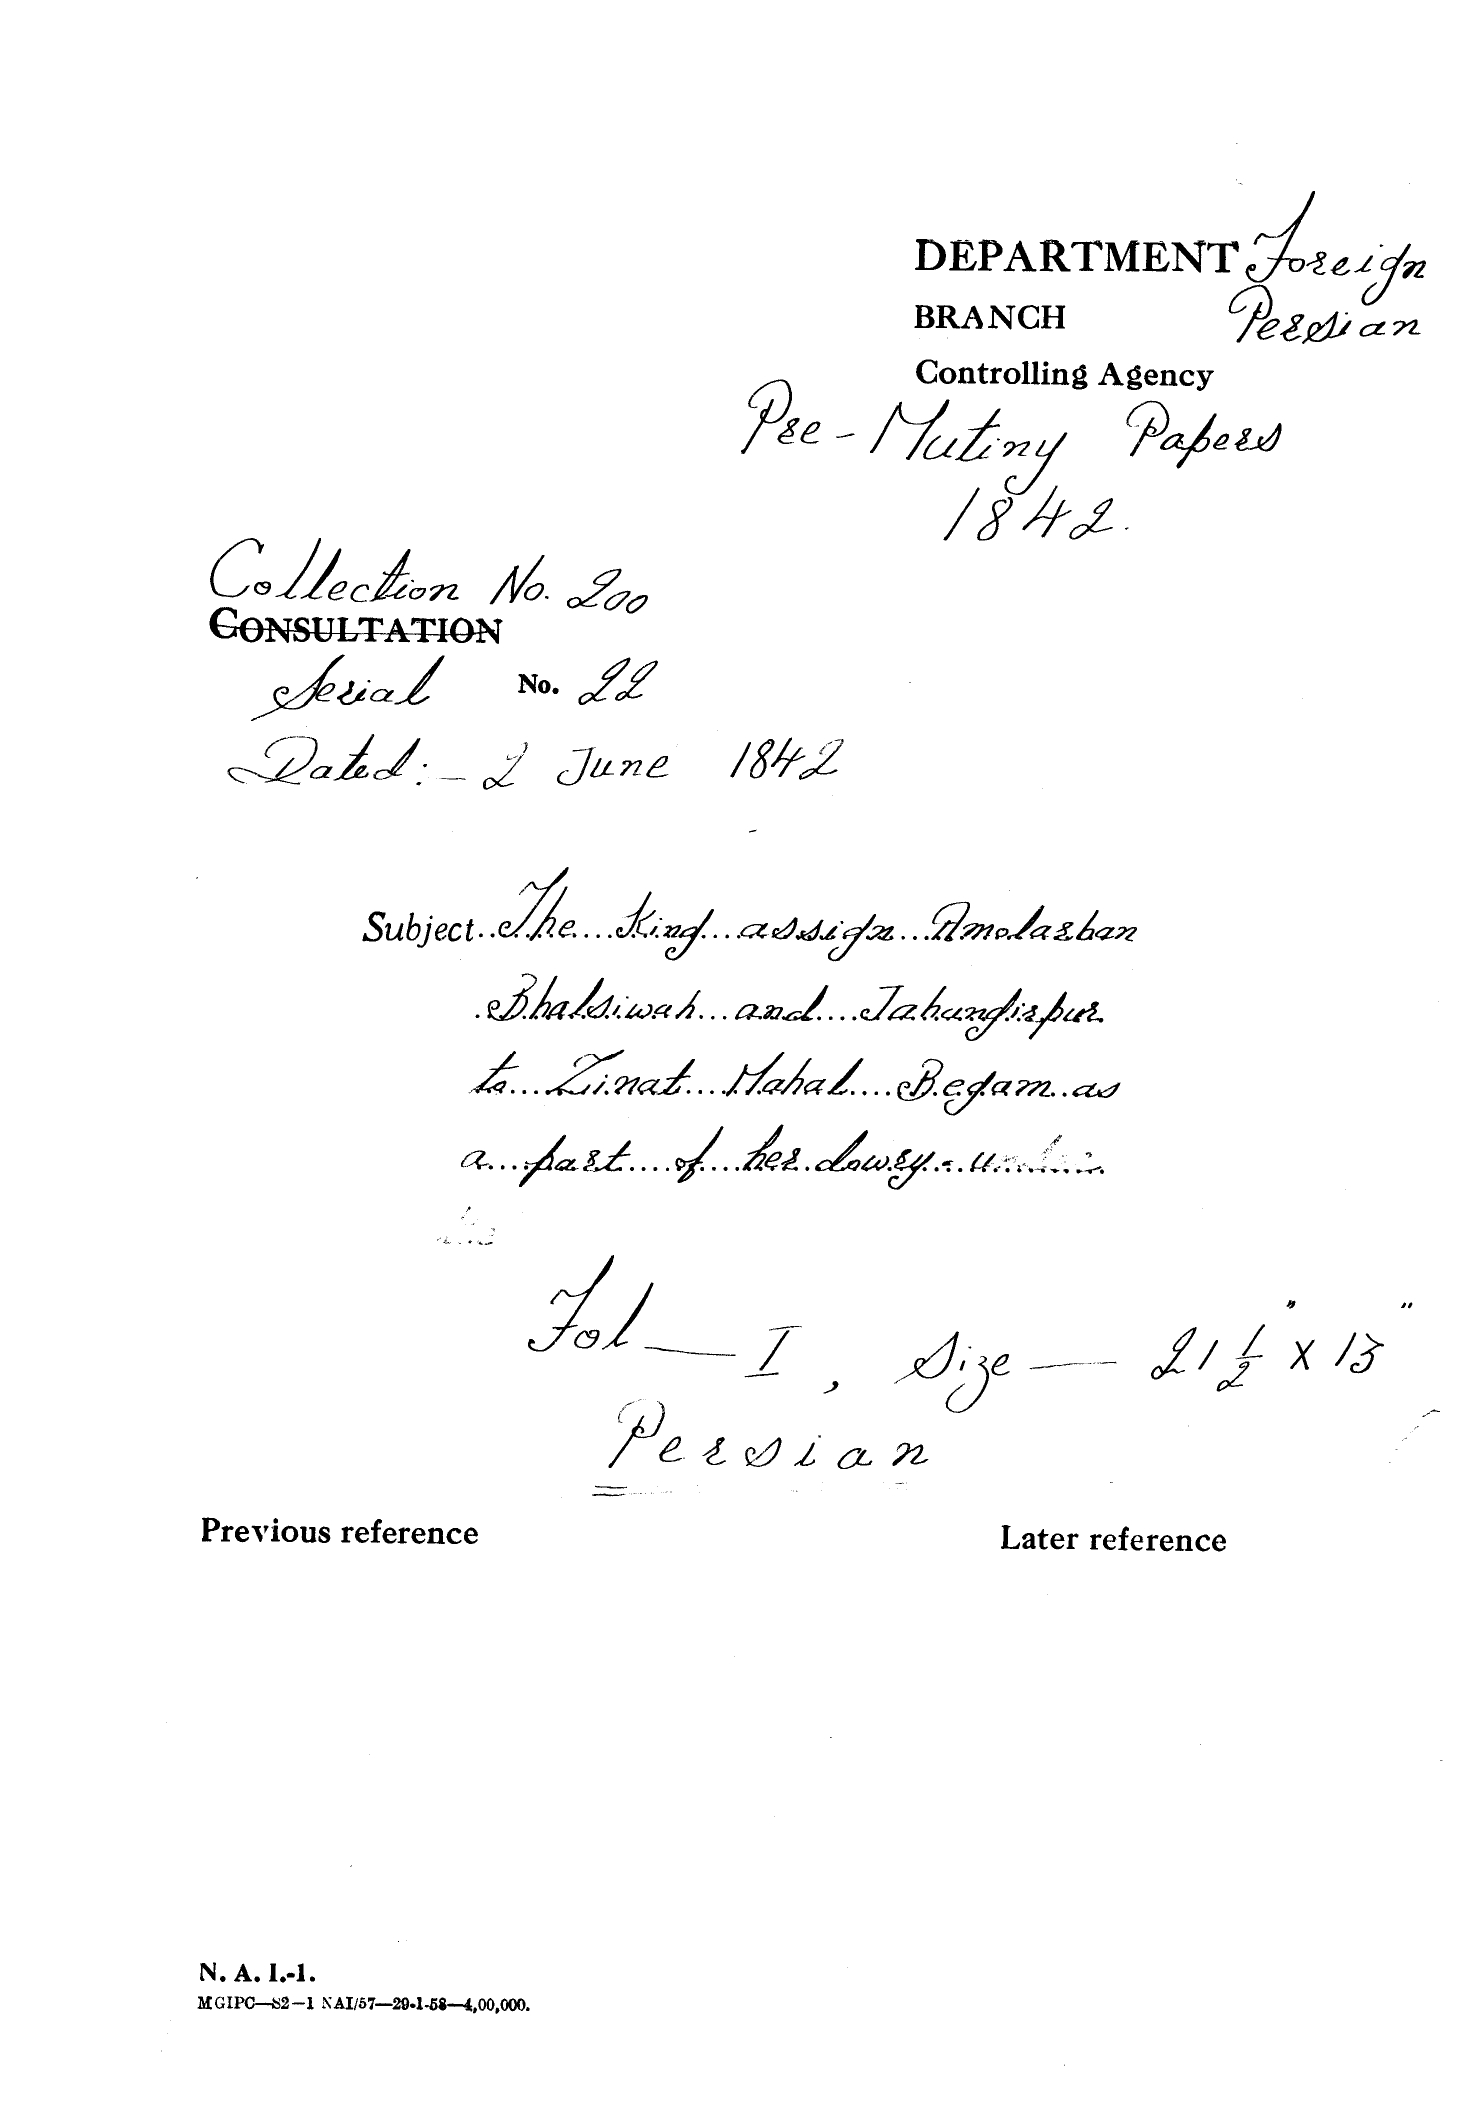 DEPARTMENT Foreign
BRANCH Persian
Controlling Agency
Pre-Mutiny Papers
1842.
Collection No. 200
CONSULTATION
Serial No. 22
Dated:- 2 June 1842
Subject The King assign Amolazhan
Bhalsiwah and Jahangirpur
to Zinat Mahal Begam as
a part of her dowry
Fol — I, Size — 21 1/2" X 13"
Persian
Previous reference Later reference
N. A. I.-1.
MGIPC—S2—1 NAI/57—29-1-58—4,00,000.